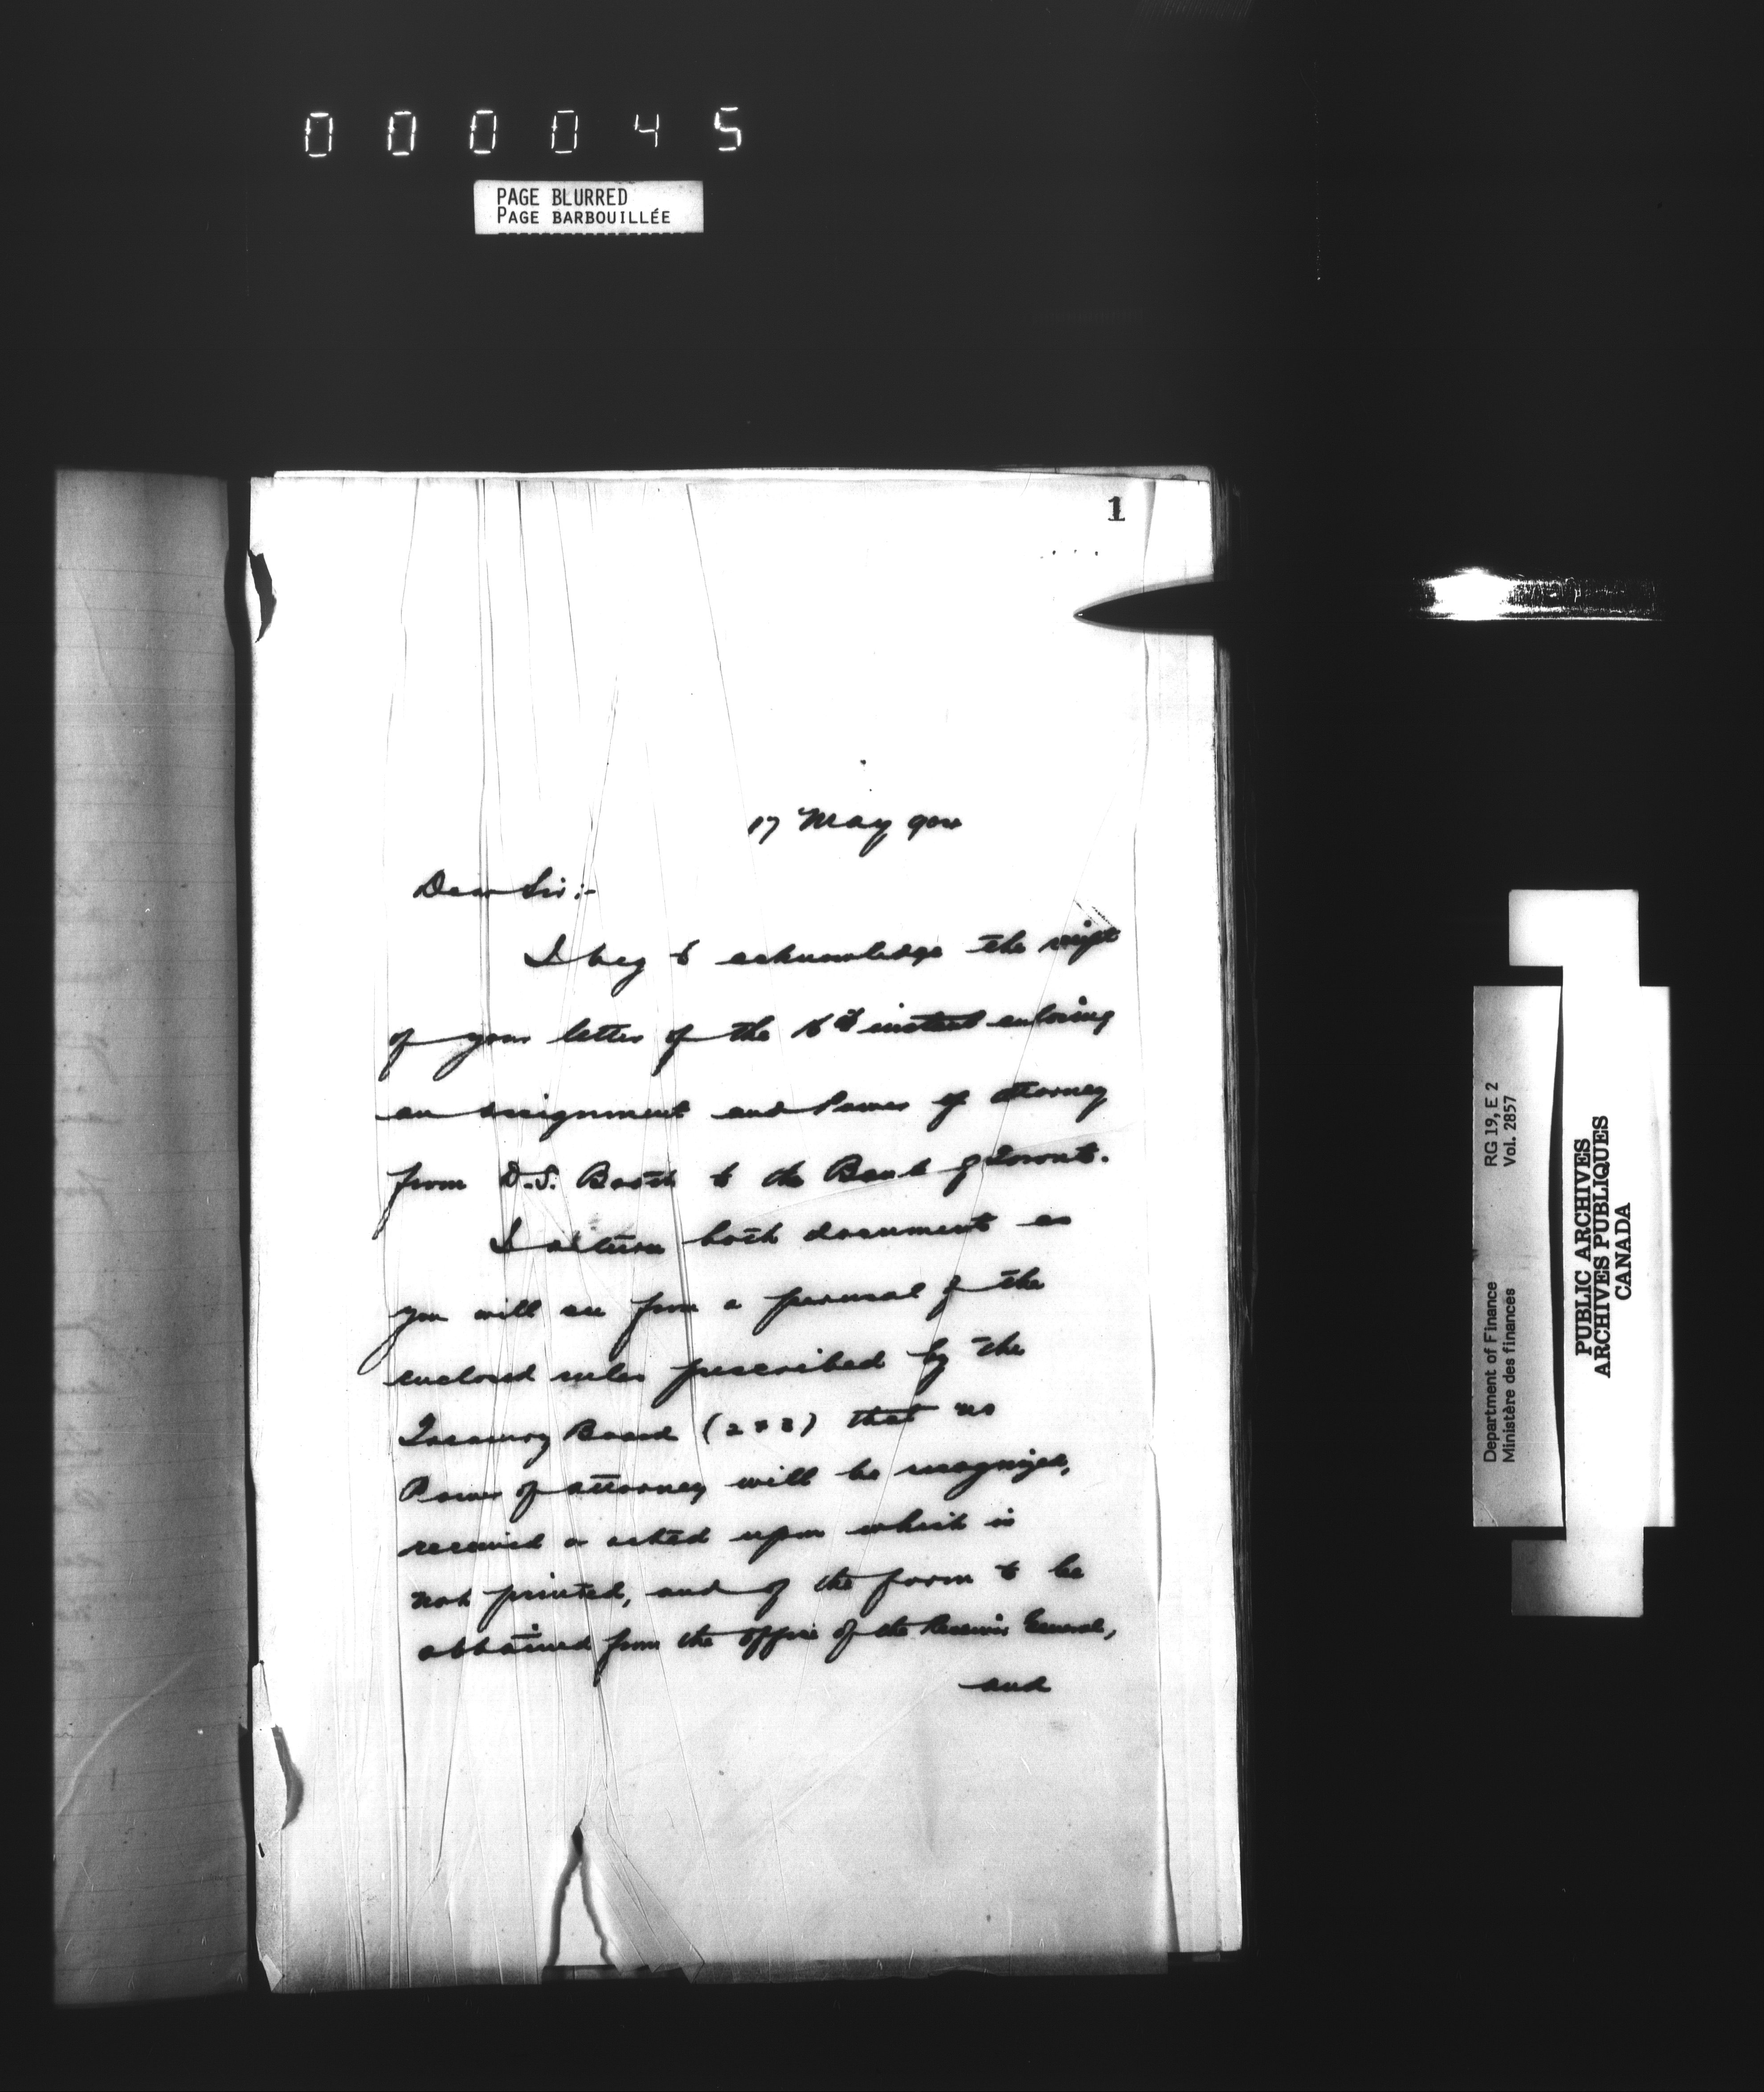 000045
PAGE BLURRED
PAGE BARBOUILLÉE
1
17 May 900
Dear Sir:-
I beg to acknowledge the receipt
of your letter of the 16th instant enclosing
an assignment and Power of attorney
from D.S. Booth to the Bank of Toronto.
I return both documents as
you will see from a perusal of the
enclosed rules prescribed by the
Treasury Board (2 & 3) that no
Power of attorney will be recognized,
received or acted upon which is
not printed, and of the form to be
obtained from the office of the Receiver General,
and
Department of Finance RG 19, E 2
Ministère des finances Vol. 2857
PUBLIC ARCHIVES
ARCHIVES PUBLIQUES
CANADA